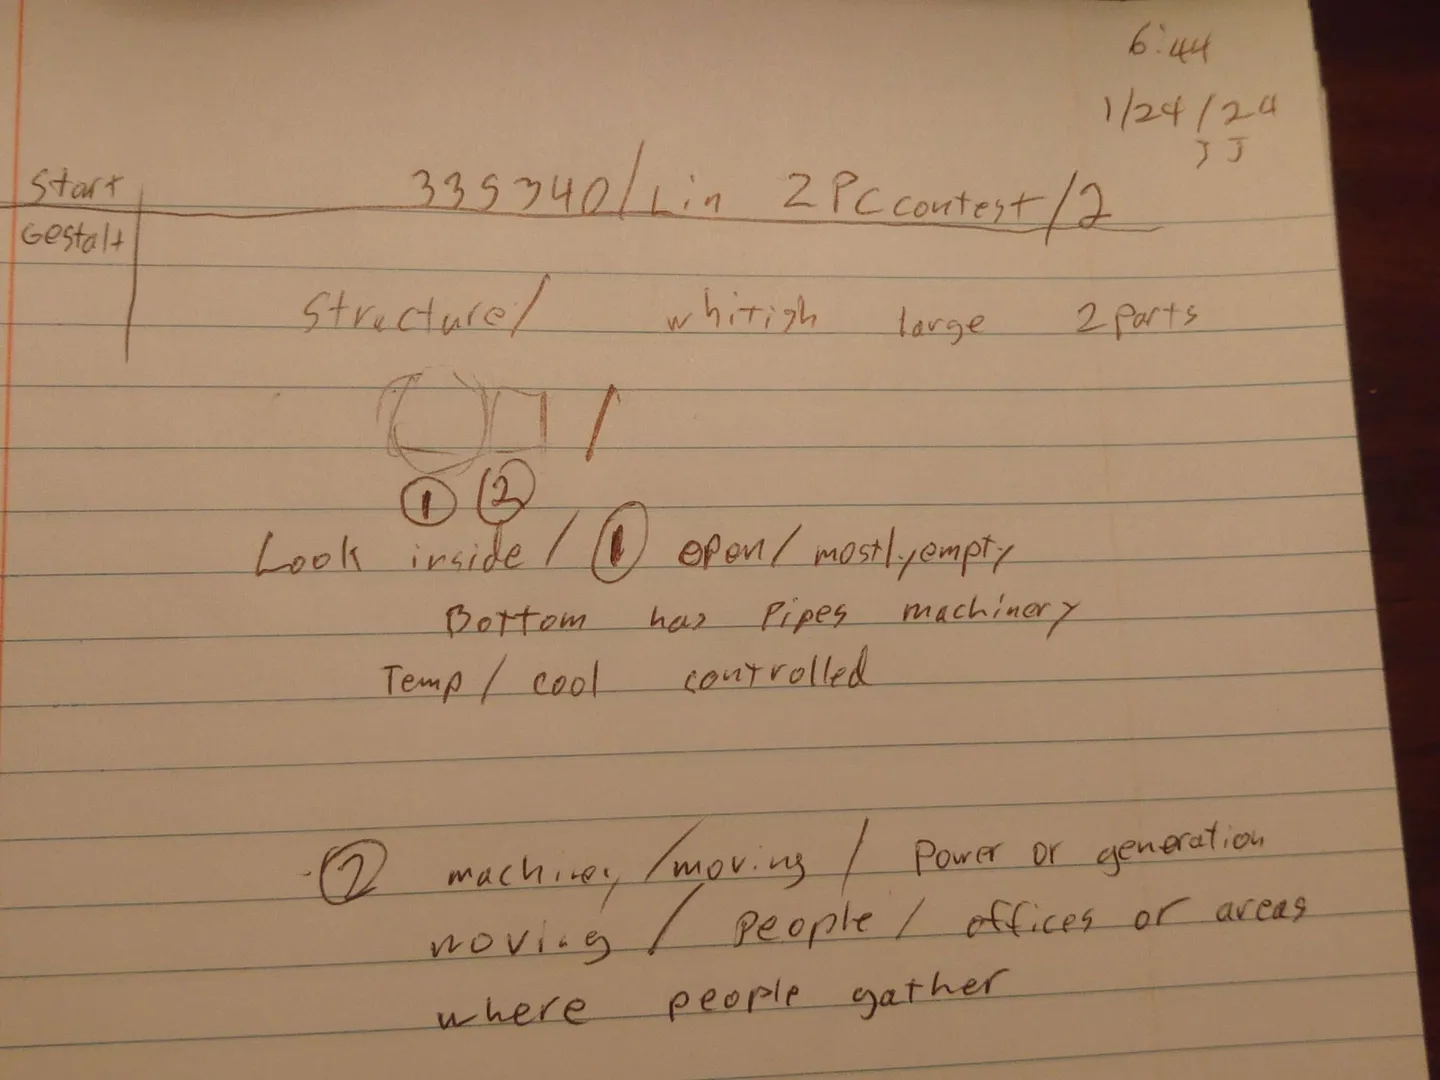 6:44
1/24/24
JJ
Start 335340/Lin 2PC contest/2
Gestalt
Structure/ whitish large 2 parts
/
1 2
Look inside / 1 open/ mostly empty
Bottom has Pipes machinery
Temp/ cool controlled
2 machinery /moving / Power or generation
moving / People / offices or areas
where people gather